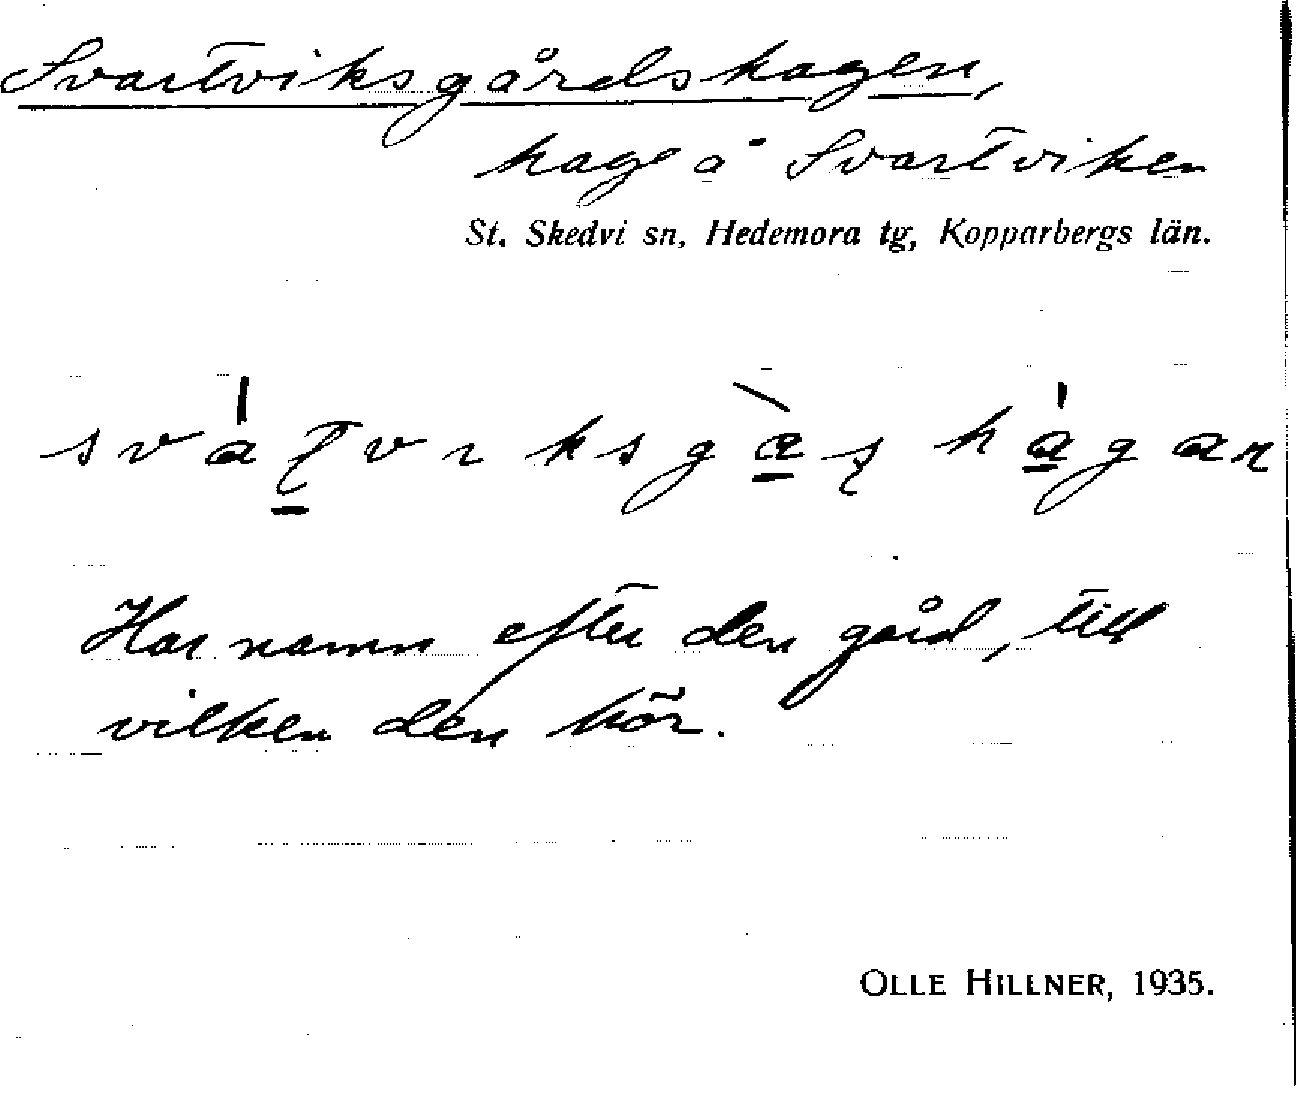 Svartviksgårdshagen,
hage å Svartviken
St. Skedvi sn, Hedemora tg, Kopparbergs län.
Har namn efter den gård, till
vilken den hör.
OLLE HILLNER, 1935.